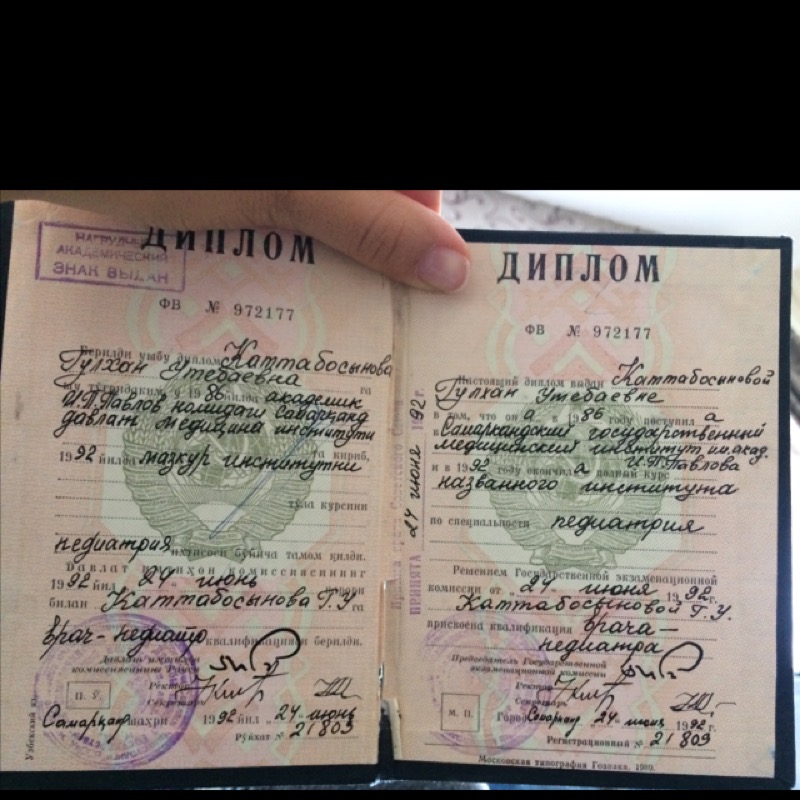 НАГРУДНЫЙ
АКАДЕМИЧЕСКИЙ
ЗНАК ВЫДАН
ДИПЛОМ
ФВ № 972177
Берилди ушбу диплом Каттабосынова
Гулхан Утебаевна га
шу тўғридаким, у 1986 академик
И.П.Павлов номидаги Самарқанд
давлат медицина институти
га кириб,
1992 йилда мазкур институтни
тўла курсини
педиатрия ихтисоси бўйича тамом қилди.
Давлат имтиҳон комиссиясининг
1992 йил 24 июнь қарори
билан Каттабосынова Г.У га
врач-педиатр квалификацияси берилди.
Давлат имтиҳон
комиссиясининг Раиси
Ректор
Секретарь
П. Ў.
Самарқанд шаҳри 1992 йил 24 июнь
Рўйхат № 21809
Узбекский яз.
ДИПЛОМ
ФВ № 972177
Настоящий диплом выдан Каттабосыновой
Гулхан Утебаевне
в том, что она в 1986 году поступила
в Самаркандский государственный
медицинский институт им.акад.
И.П.Павлова
и в 1992 году окончила полный курс
названного института
по специальности педиатрия
Решением Государственной экзаменационной
комиссии от „24“ июня 1992 г.
Каттабосыновой Г.У.
присвоена квалификация врача-
педиатра
Председатель Государственной
экзаменационной комиссии
Ректор
Секретарь
М. П.
Город Самарканд 24 июнь 1992 г.
Регистрационный № 21809
Московская типография Гознака. 1989.
ПРИНЯТА
24 июня 1992 г.